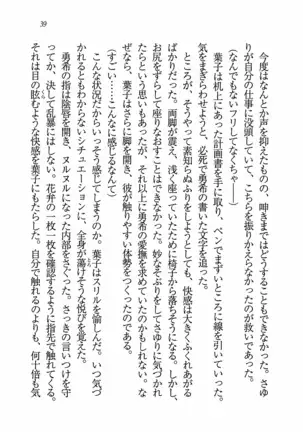 39
今度はなんとか声を抑えたものの、呻きまではどうすることもできなかった。さゆ
りが仕事に没頭していて、こちらを振りかえらなかったのが救いであった。
(なんでもないフリしてなくちゃ――)
葉子は机上にあった計画書を手に取り、ペンでまずいところに線を引いていった。
気をまぎらわせようと、必死で勇希の書いた文字を追った。
ところが、そうやって素知らぬふりをしようとしても、快感は大きくふくれあがる
ばかりだった。両脚が震え、浅く座っていたために椅子から落ちそうになる。しかし、
お尻をずらして座りなおすことはできなかった。妙なそぶりをしてさゆりに気づかれ
たらという思いもあったが、それ以上に勇希の愛撫を求めていたのかもしれない。な
ぜなら、葉子はさらに脚を開き、彼が触りやすい体勢をつくったのである。
(すごい……こんなに感じるなんて)
こんな状況だからいっそう感じてしまうのか。葉子はスリルを愉しんだ。いつ気づ
かれるともわからないシチュエーションに、全身が蕩けそうな悦びを覚えた。
勇希の指は陰唇を開き、ヌルヌルになった内部をさぐった。さっきの言いつけを守
ってか、決して乱暴にはしない。花弁の一枚一枚を確認するように指先で触れる。そ
れは目の眩むような快感を葉子にもたらした。自分で触れるのよりも、何十倍も気